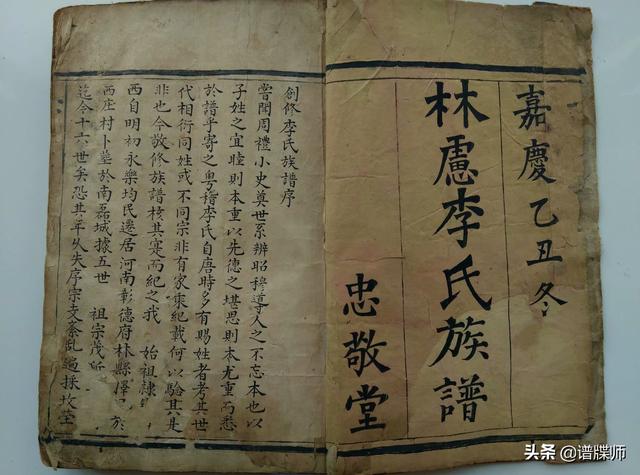 嘉慶乙丑冬
林慮李氏族譜
忠敬堂
創修李氏族譜序
嘗聞周禮小史奠世系辨昭穆導人之不忘本也以
子姓之宜睦則本重以先德之堪思則本尤重而悉
於譜乎寄之粵稽李氏自唐時多有賜姓者考其世
代相衍同姓或不同宗非有家乘紀載何以驗其是
非也今敬修族譜核其寔而紀之我 始祖隸
西自明初永樂均民遷居河南彰德府林縣擇 於
西庄村卜墓於南磊城據五世 祖宗茂所
迄今十六世矣恐其年久失序宗支紊亂遍採坟塋
头条 @谱牒师